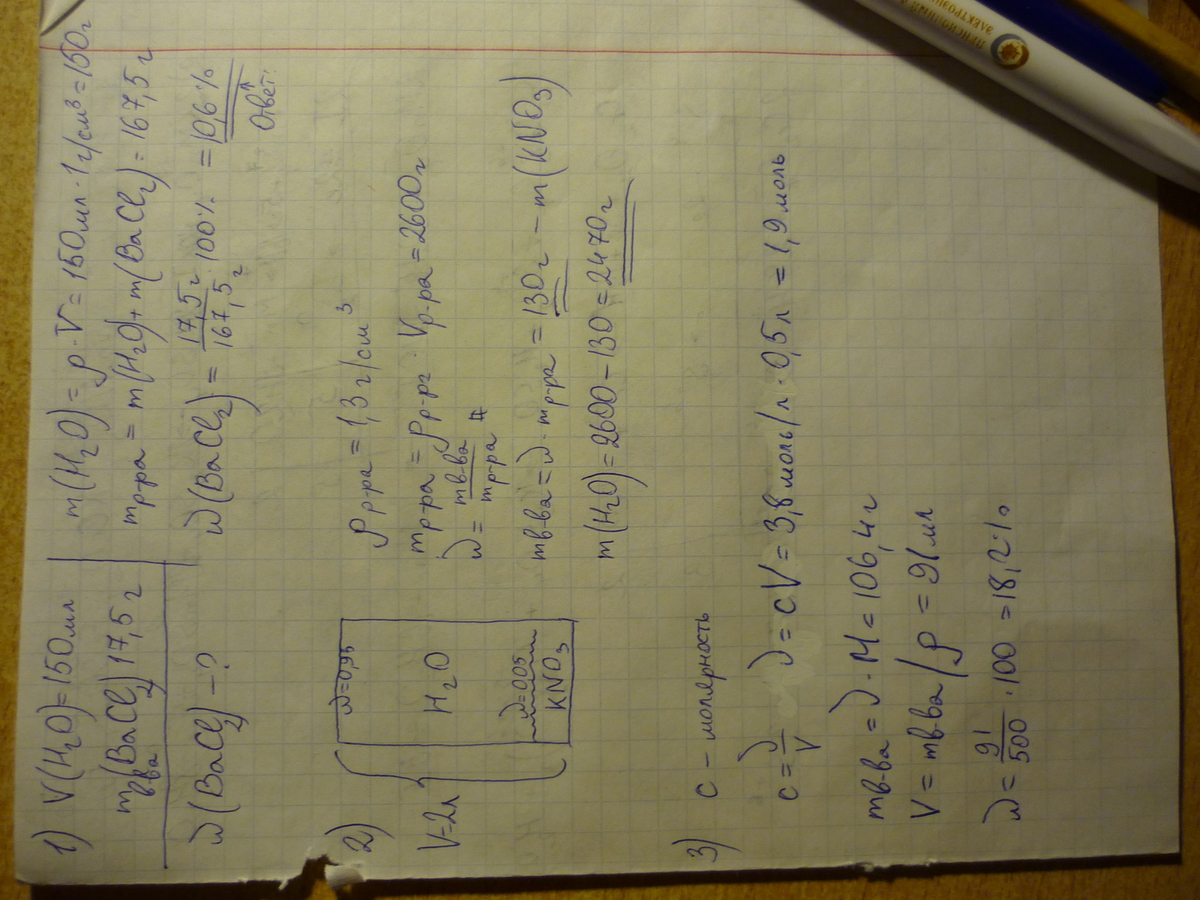 1) V(H₂O)=150мл
m(BaCl₂) 17,5 г
в-ва
ω(BaCl₂) – ?
m(H₂O) = ρ·V = 150мл · 1 г/см³ = 150г
mр-ра = m(H₂O) + m(BaCl₂) = 167,5 г
ω(BaCl₂) = 17,5г/167,5г · 100% = 10,6%
Ответ:
2) V=2л
ω=0,95
H₂O
ω=0,05
KNO₃
ρр-ра = 1,3 г/см³
mр-ра = ρр-ра · Vр-ра = 2600г
ω = mв-ва/mр-ра
mв-ва = ω · mр-ра = 130г – m(KNO₃)
m(H₂O) = 2600 – 130 = 2470г
3) c – молярность
c = ν/V ν = cV = 3,8 моль/л · 0,5л = 1,9 моль
mв-ва = ν · M = 106,4г
V = mв-ва/ρ = 91 мл
ω = 91/500 · 100 = 18,2%